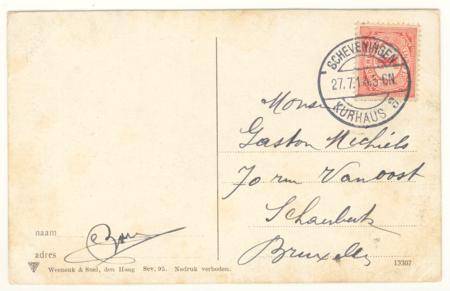 SCHEVENINGEN
27.7.14.3-6N
KURHAUS 3
Monsieur
Gaston Michiels
70 rue Van oost
Schaerbeek
Bruxelles
naam
adres
Weenenk & Snel, den Haag Sev. 95. Nadruk verboden.
13307